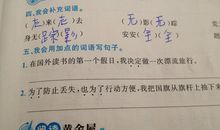 四、我会补充词语。
(走)来(走)去 (无)影(无)踪
身无(踪影) 安安(全)(全)
五、我会用加点的词语写句子。
1. 在国外读书的第一个假日,我决定做一次漂流旅行。
2. 为了防止丢失,也为了行动方便,我把国旗从旗杆上抽下来
黄金屋